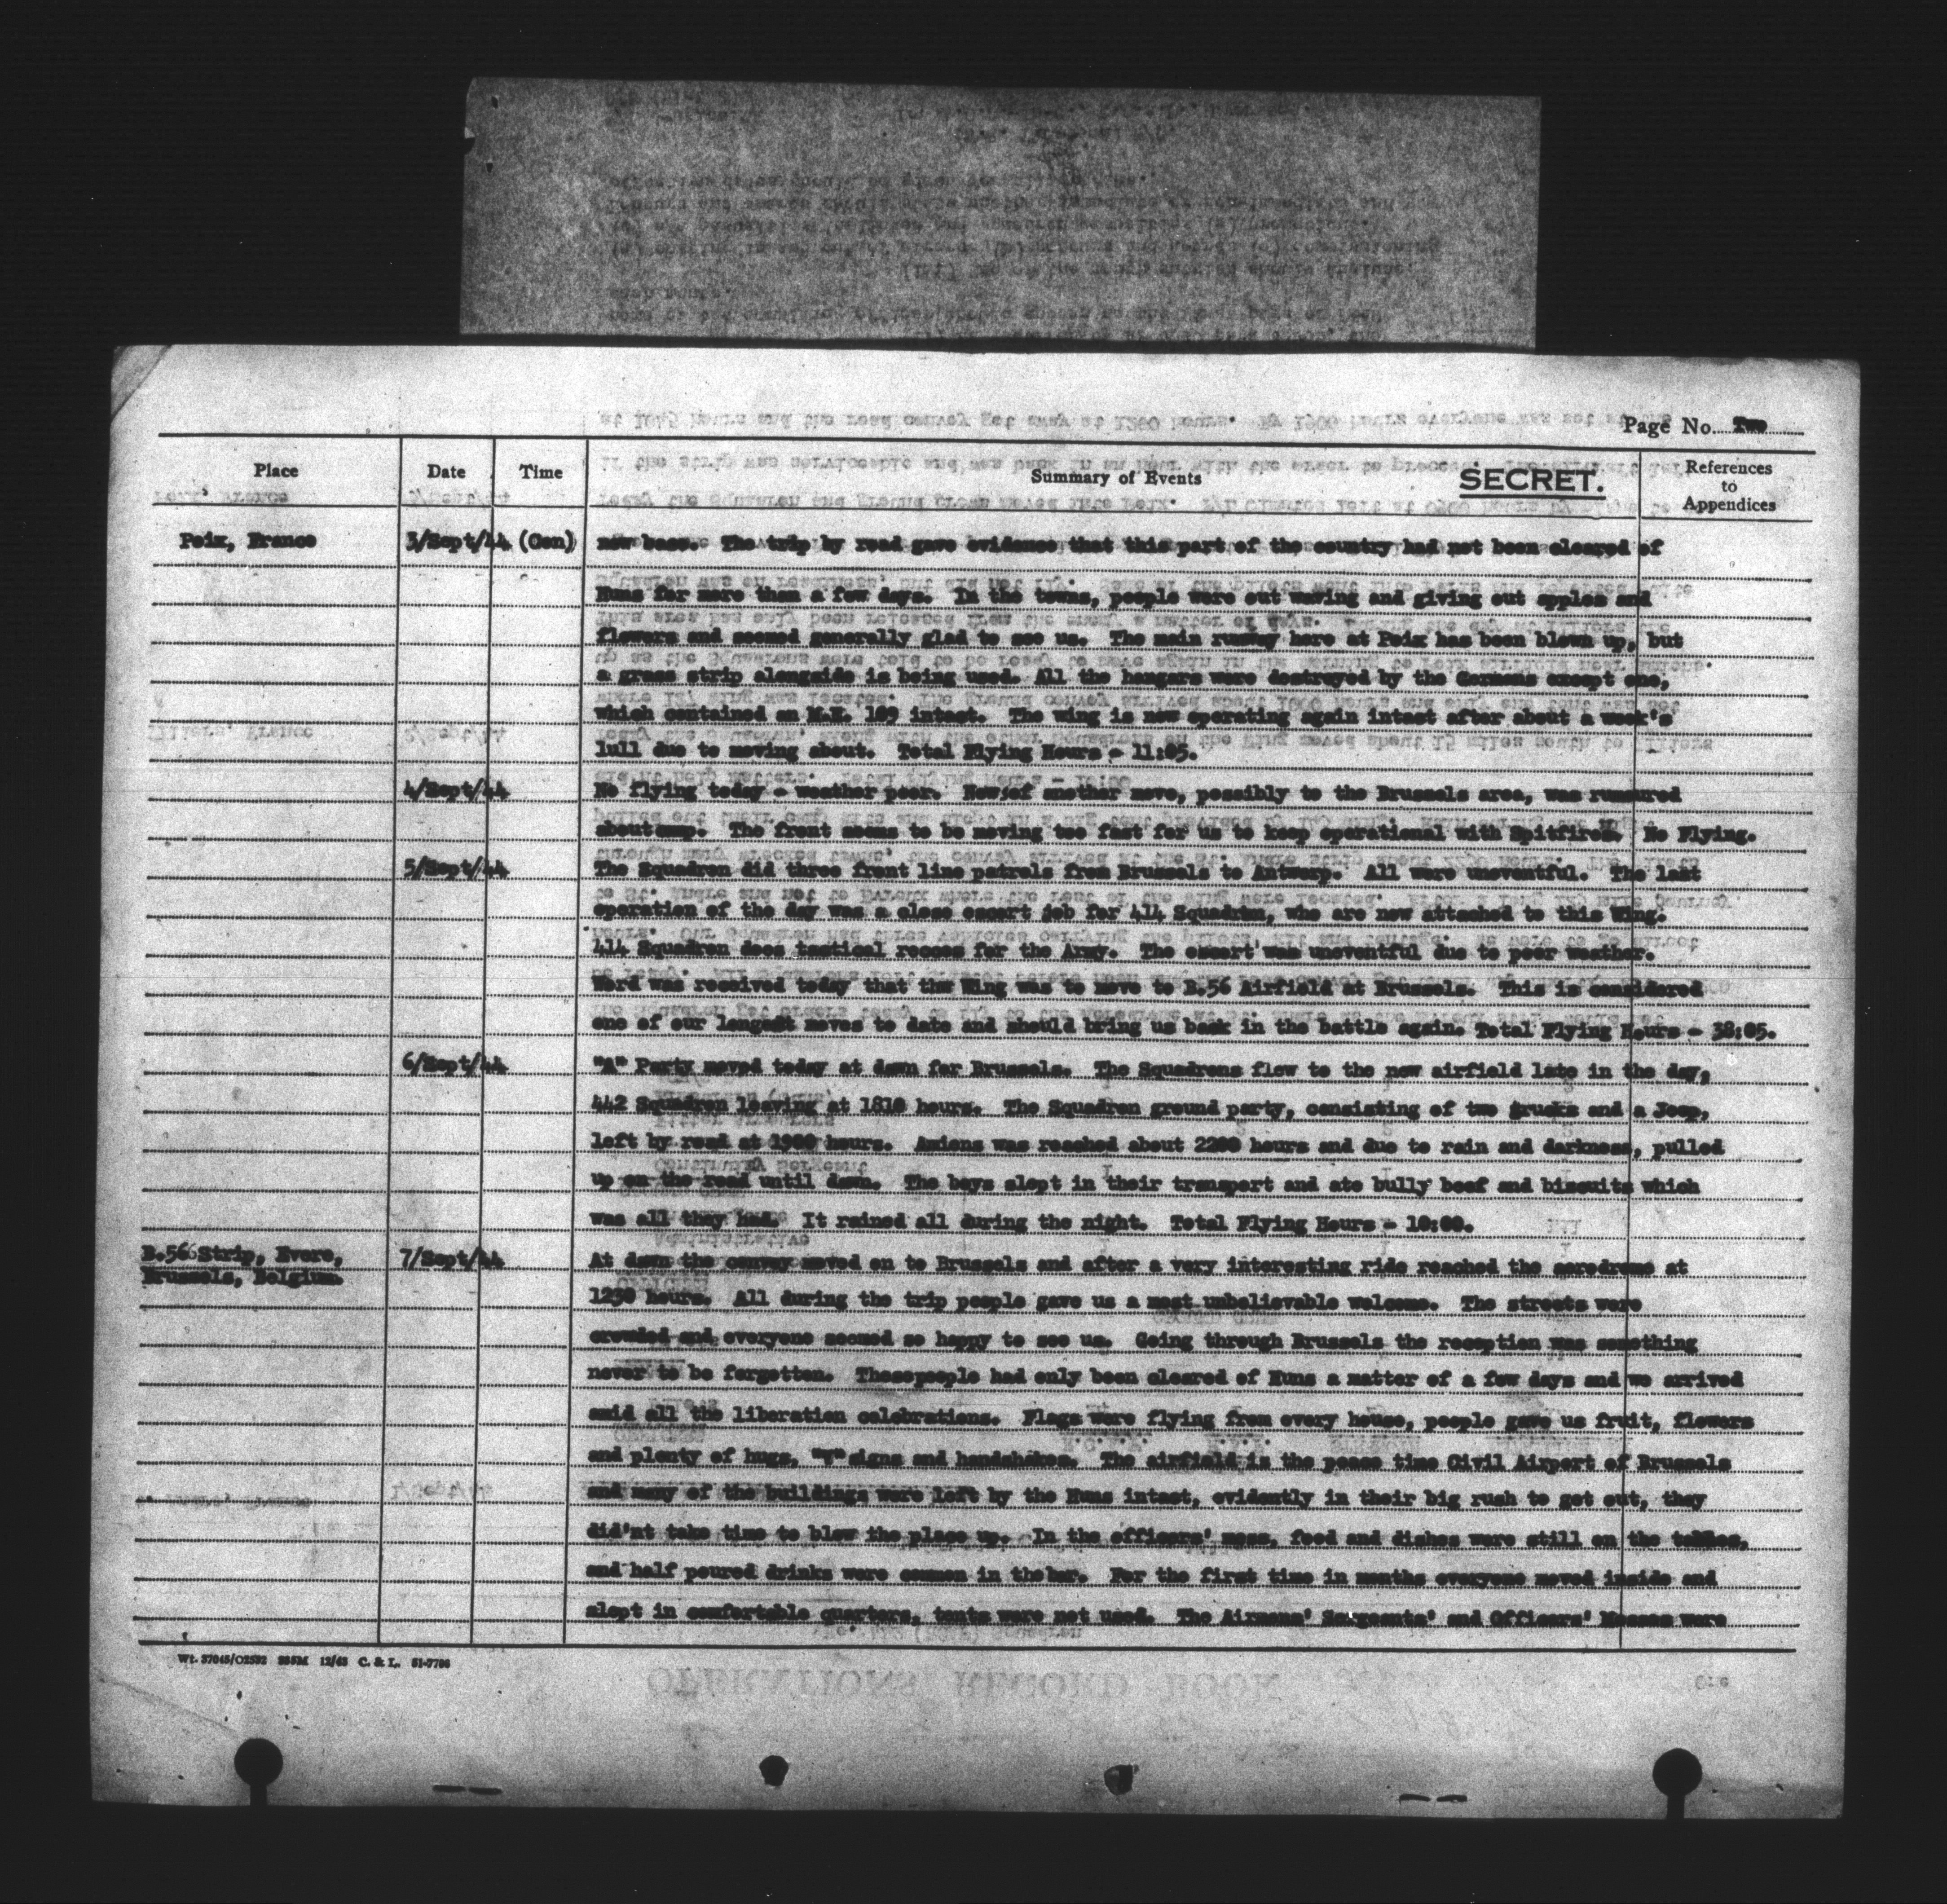 Page No. Two
Place Date Time Summary of Events SECRET. References to Appendices
Poix, France 3/Sept/44 (Con) new base. The trip by road gave evidence that this part of the country had not been cleared of
Huns for more than a few days. In the towns, people were out waving and giving out apples and
flowers and seemed generally glad to see us. The main runway here at Poix has been blown up, but
a grass strip alongside is being used. All the hangars were destroyed by the Germans except one,
which contained an M.E. 109 intact. The wing is now operating again intact after about a week's
lull due to moving about. Total Flying Hours - 11:05.
4/Sept/44 No flying today - weather poor. News of another move, possibly to the Brussels area, was rumoured
about camp. The front seems to be moving too fast for us to keep operational with Spitfires. No Flying.
5/Sept/44 The Squadron did three front line patrols from Brussels to Antwerp. All were uneventful. The last
operation of the day was a close escort job for 414 Squadron, who are now attached to this Wing.
414 Squadron does tactical recces for the Army. The escort was uneventful due to poor weather.
Word was received today that the Wing was to move to B.56 Airfield at Brussels. This is considered
one of our longest moves to date and should bring us back in the battle again. Total Flying Hours - 38:05.
6/Sept/44 "A" Party moved today at dawn for Brussels. The Squadrons flew to the new airfield late in the day,
442 Squadron leaving at 1810 hours. The Squadron ground party, consisting of two trucks and a Jeep,
left by road at 1900 hours. Amiens was reached about 2200 hours and due to rain and darkness, pulled
up on the road until dawn. The boys slept in their transport and ate bully beef and biscuits which
was all they had. It rained all during the night. Total Flying Hours - 10:00.
B.56 Strip, Evere, 7/Sept/44 At dawn the convoy moved on to Brussels and after a very interesting ride reached the aerodrome at
Brussels, Belgium.
1230 hours. All during the trip people gave us a most unbelievable welcome. The streets were
crowded and everyone seemed so happy to see us. Going through Brussels the reception was something
never to be forgotten. Thesepeople had only been cleared of Huns a matter of a few days and we arrived
amid all the liberation celebrations. Flags were flying from every house, people gave us fruit, flowers
and plenty of hugs, "V" signs and handshakes. The airfield is the peace time Civil Airport of Brussels
and many of the buildings were left by the Huns intact, evidently in their big rush to get out, they
did'nt take time to blow the place up. In the officers' mess, food and dishes were still on the tables,
and half poured drinks were common in thebar. For the first time in months everyone moved inside and
slept in comfortable quarters, tents were not used. The Airmens' Sergeants' and Officers' Messes were
Wt. 37045/O2532 285M 12/43 C. & L. 51-7706